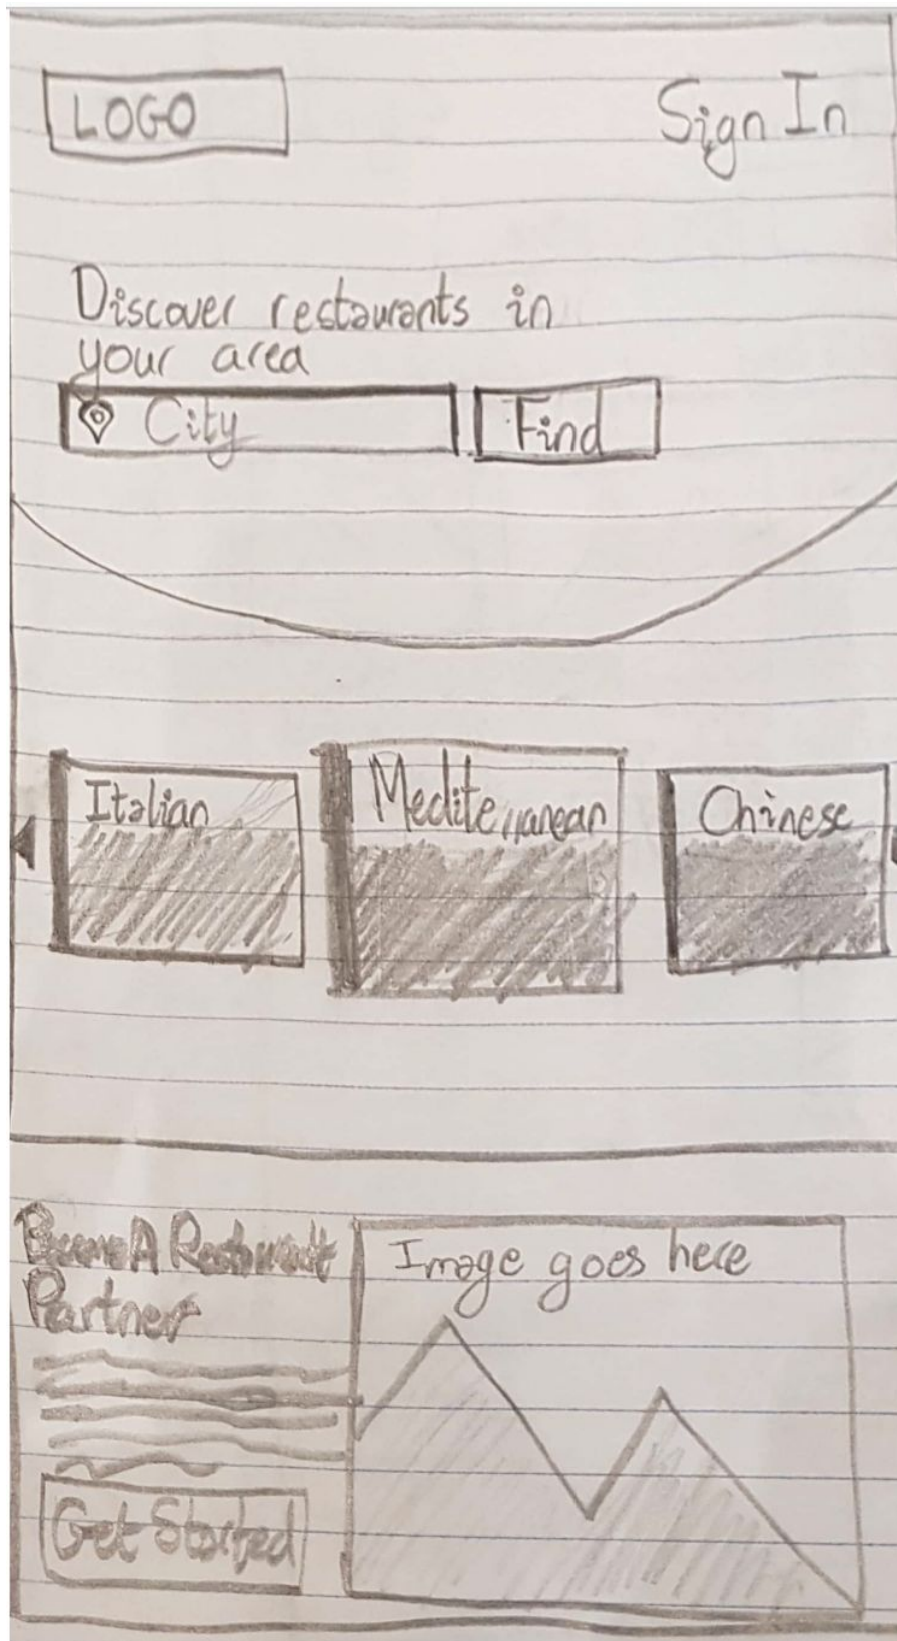 LOGO
Sign In
Discover restaurants in
your area
City
Find
Italian
Mediterranean
Chinese
Become A Restaurant
Partner
Image goes here
Get Started